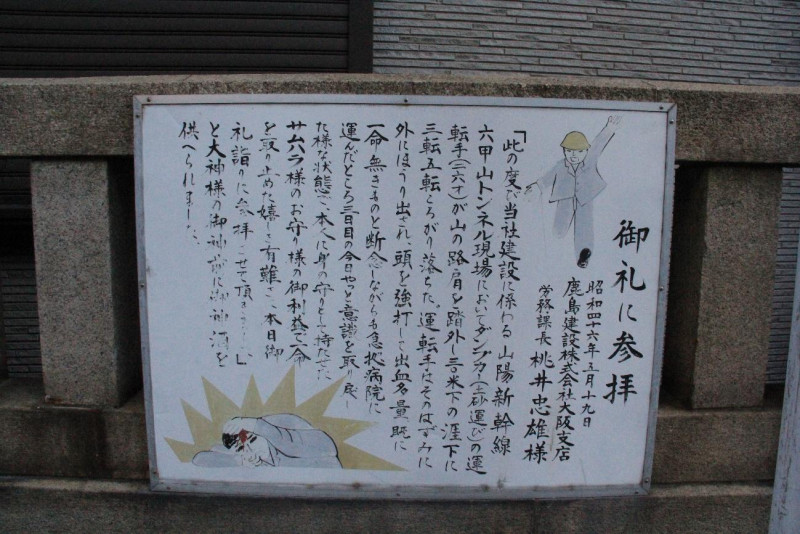 御礼に参拝
昭和四十六年五月十九日
鹿島建設株式会社大阪支店
労務課長 桃井忠雄様
「此の度が当社建設に係わる山陽新幹線
六甲山トンネル現場においてダンプカー(土砂運び)の運
転手(二六才)が山の路肩を踏外し三〇米下の涯下に
三転五転ころがり落ちた。運転手はそのはずみに
外にほうり出され、頭を強打して出血多量、既に
一命無きものと断念しながらも急拠病院に
運んだところ三日目の今日やっと意識を取り戻し
た様な状態で、本人に身の守りとして持たせた
サムハラ様のお守り様の御利益で一命
を取り止めた嬉しさ有難さで、本日御
礼詣りに参拝させて頂き
と大神様の御神前に御神酒を
供へられました。